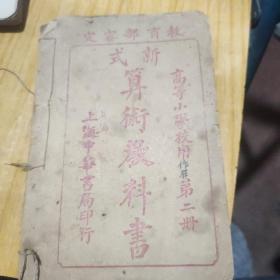 教育部審定
高等小學校用
第二冊
新式
算術教科書
上海中華書局印行